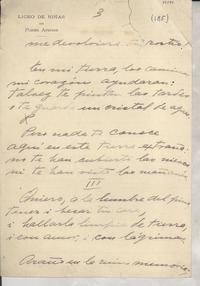 LICEO DE NIÑAS
DE
PUNTA ARENAS
3
(185)
me devolviera tu rostro!
En mi tierra, los caminos
mi corazón ayudaran:
Talvez te pintan las tardes
o te guarda un cristal de aguas.
Pero nada te conoce
aquí en esta tierra extraña:
no te han cubierto las nieves
ni te han visto las mañanas.
III
Quiero, a la lumbre del
tener i besar tu cara,
i hallarla limpia de tierra,
i con amor, i con lágrimas.
Araño en la ruin memoria;